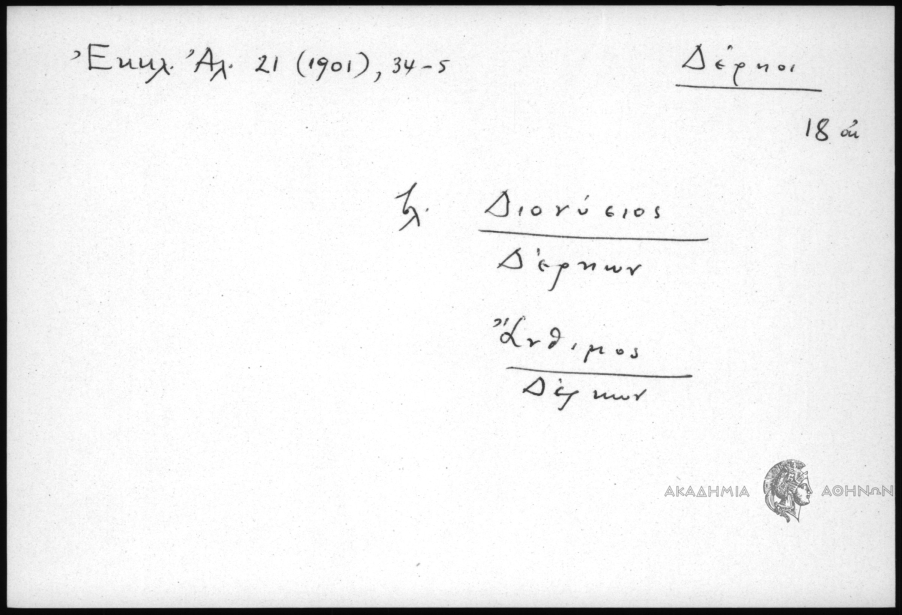 Ἐκκλ. Ἀλ. 21 (1901), 34-5
Δέρκοι
18 αἰ
βλ. Διονύσιος
Δέρκων
Ἄνθιμος
Δέρκων
ΑΚΑΔΗΜΙΑ ΑΘΗΝΩΝ